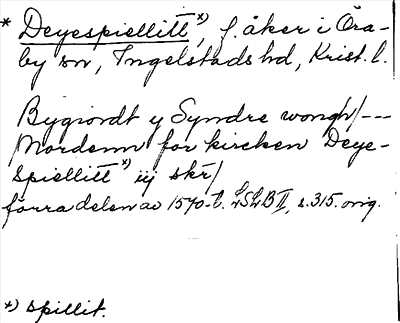 * Deyespiellitt *), f. åker i Öra-
by sn, Ingelstads hd, Krist. l.
Bygiordt y Syndre wongh /---
/Nordenn for kircken Deye-
spiellitt *) iij skr/
förra delen av 1570-t. LSLB II, s. 315. orig.
*) spillit.